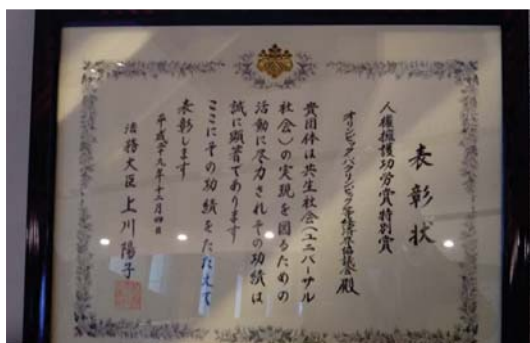 表彰状
人権擁護功労賞特別賞
オリンピック・パラリンピック等経済界協議会 殿
貴団体は共生社会（ユニバーサル
社会）の実現を図るための
活動に尽力されその功績は
誠に顕著であります
ここにその功績をたたえて
表彰します
平成二十九年十二月四日
法務大臣 上川陽子